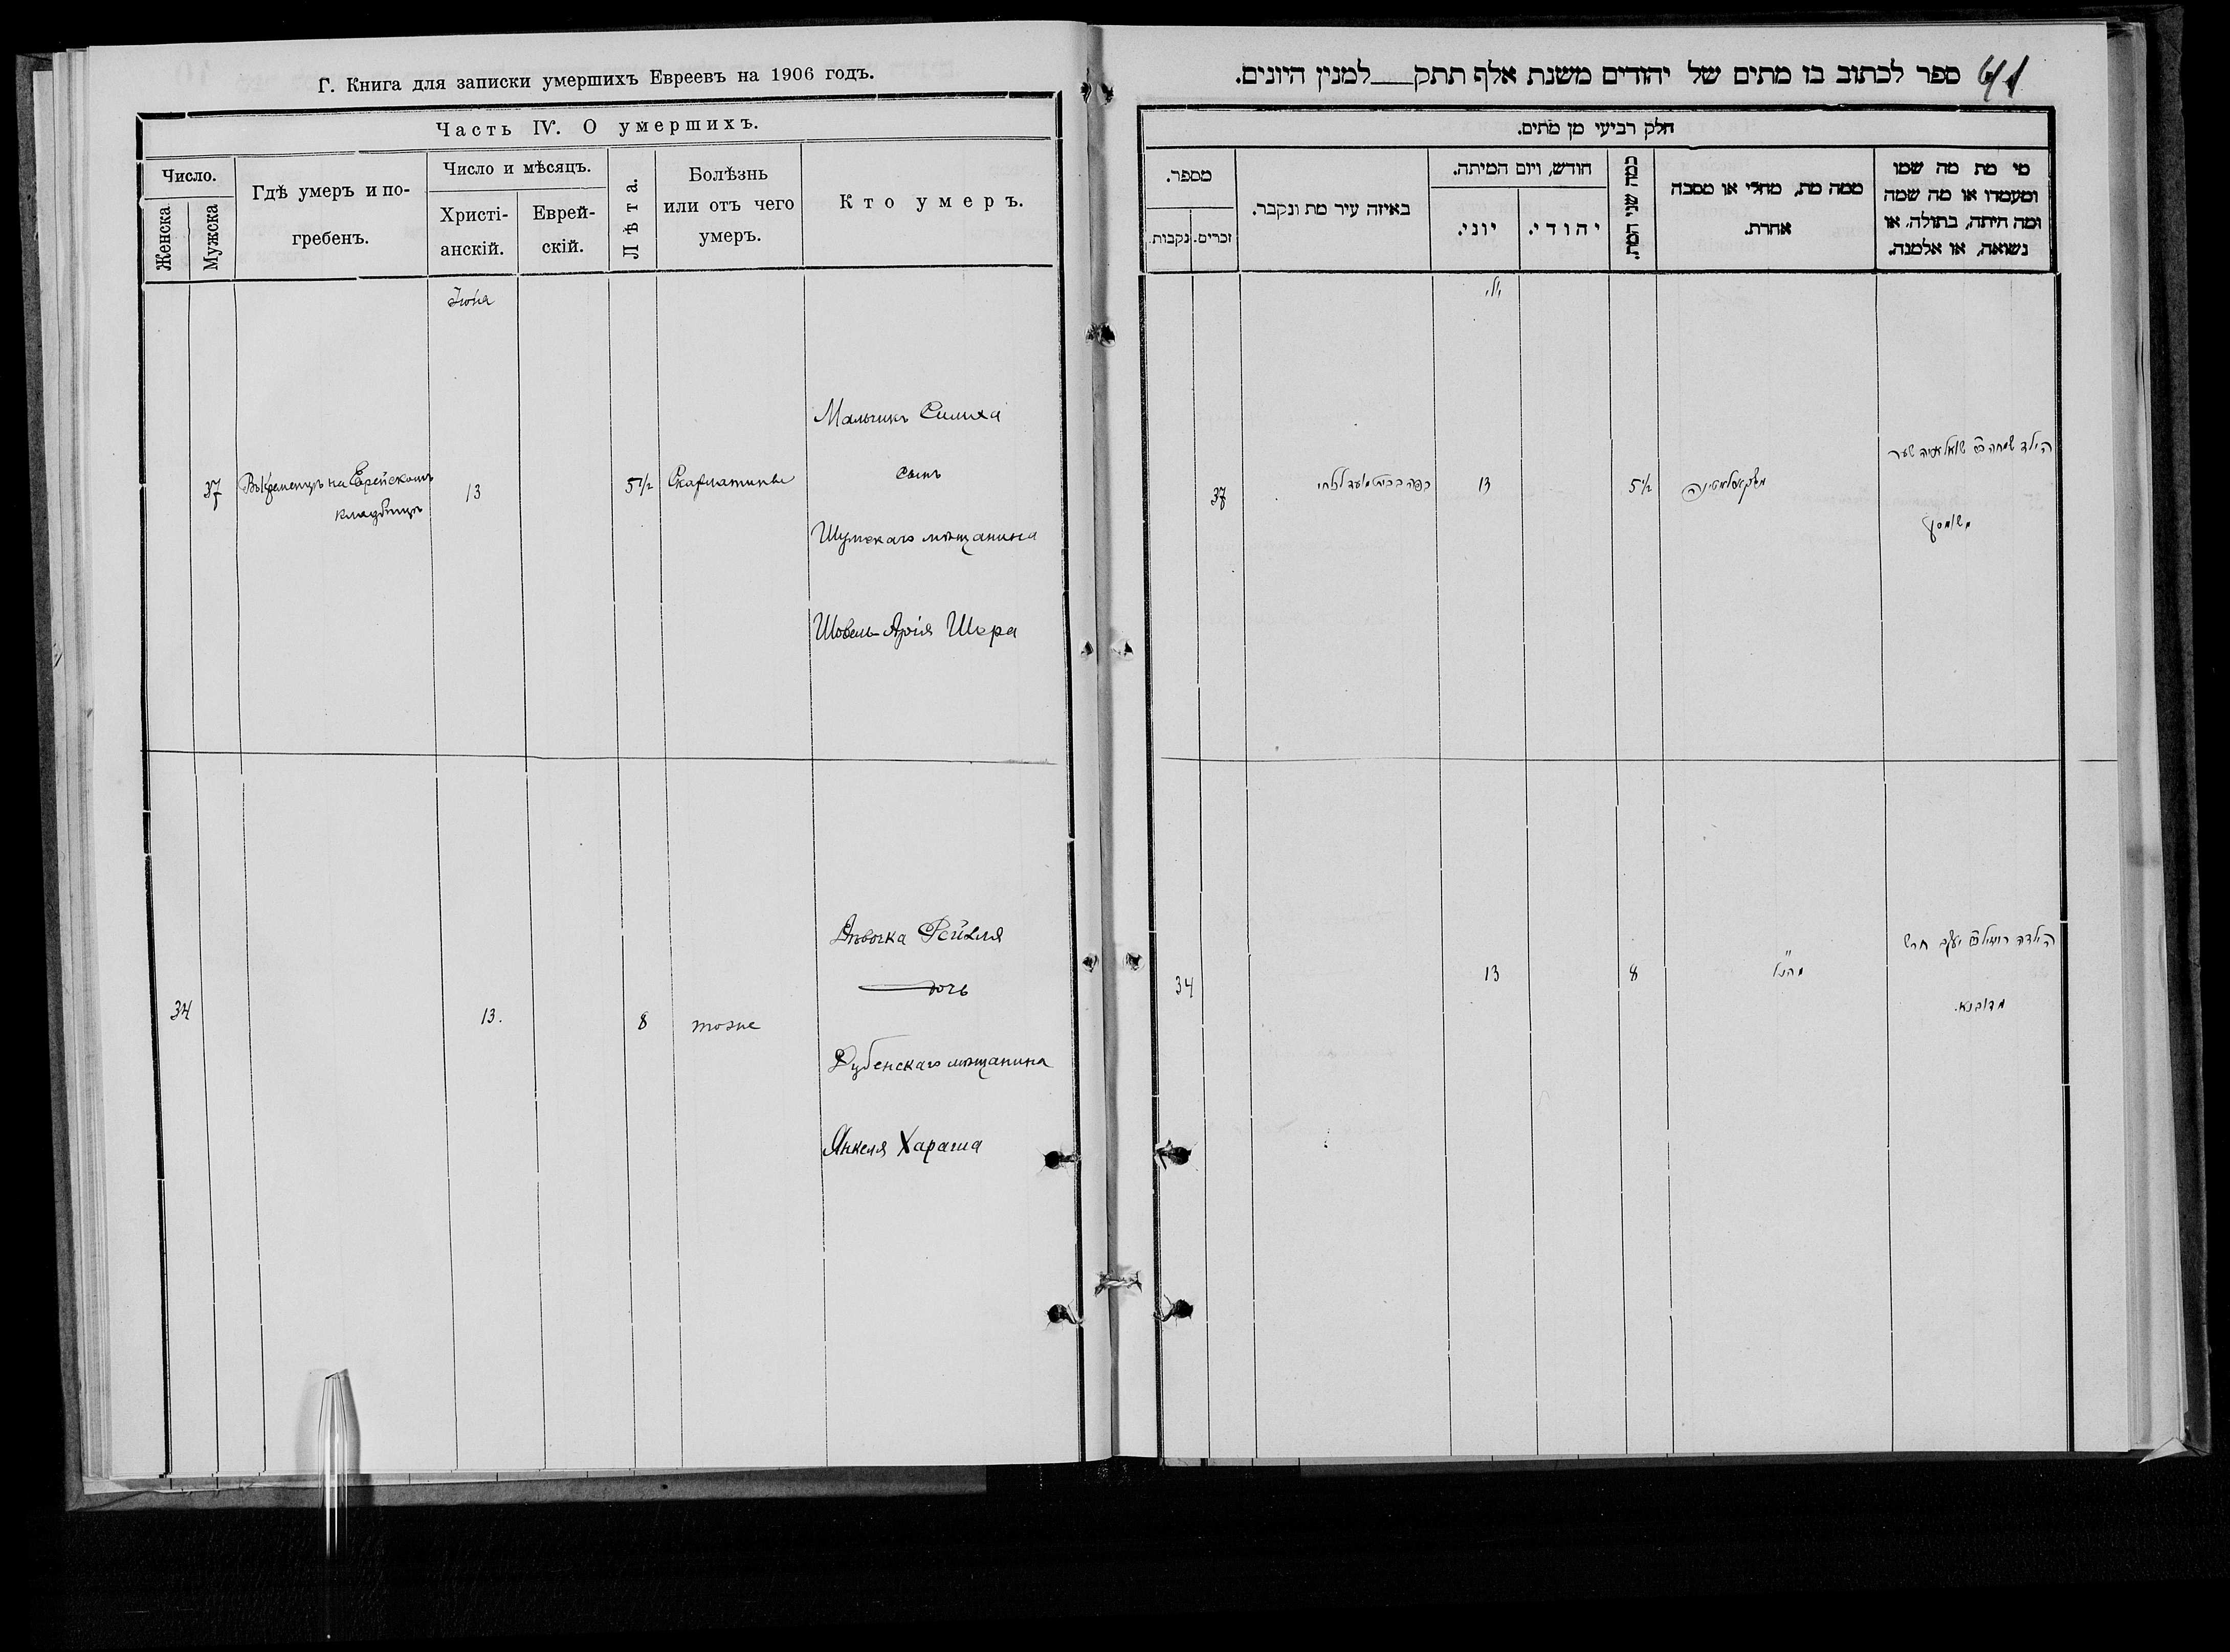 Г. Книга для записки умершихъ Евреевъ на 1906 годъ.
Часть IV. О умершихъ.
Число.
Женска
Мужска
Гдѣ умеръ и по-
гребенъ.
Число и мѣсяцъ.
Христі-
анскій.
Еврей-
скій.
Лѣта.
Болѣзнь
или отъ чего
умеръ.
Кто умеръ.
37
Въ Кременцѣ на Еврейскомъ
кладбищѣ
13
5½
Скарлатины
Мальчикъ Симха
сынъ
Шумскаго мѣщанина
Шовель-Арія Шера
34
13.
8
тоже
Дѣвочка Рейзля
дочь
Дубенскаго мѣщанина
Янкеля Хараша
41
ספר לכתוב בו מתים של יהודים משנת אלף תתק___למנין היונים.
חלק רביעי מן מתים.
מספר.
נקבות.
זכרים.
באיזה עיר מת ונקבר.
חודש, ויום המיתה.
יוני.
יהודי.
כמה שני המת.
ממה מת, מחלי או מסבה
אחרת.
מי מת מה שמו
ומעמדו או מה שמה
ומה היתה, בתולה, או
נשואה, או אלמנה.
יולי
37
13
5½
הילד שמחה
משומסק
34
13
8
מהנ"ל
הילדה
יעקב חרש
מדובנא.